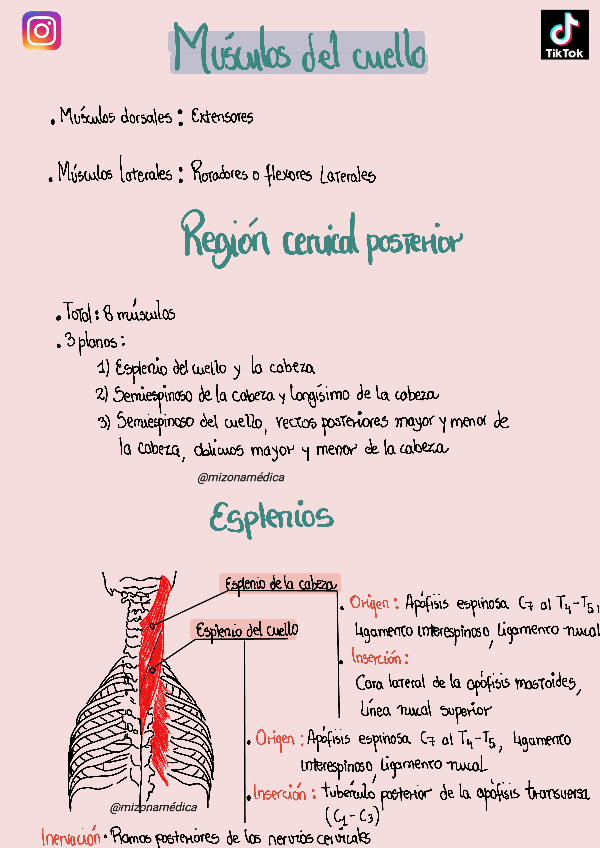 TikTok
Músculos del cuello
• Músculos dorsales: Extensores
• Músculos laterales: Rotadores o flexores laterales
Región cervical posterior
• Total: 8 músculos
• 3 planos:
1) Esplenio del cuello y la cabeza
2) Semiespinoso de la cabeza y longísimo de la cabeza
3) Semiespinoso del cuello, rectos posteriores mayor y menor de
la cabeza, oblicuos mayor y menor de la cabeza
@mizonamédica
Esplenios
Esplenio de la cabeza
• Origen: Apófisis espinosa C7 al T4-T5,
ligamento interespinoso, ligamento nucal
• Inserción:
Cara lateral de la apófisis mastoides,
línea nucal superior
Esplenio del cuello
• Origen: Apófisis espinosa C7 al T4-T5, ligamento
interespinoso, ligamento nucal
• Inserción: tubérculo posterior de la apófisis transversa
(C1-C3)
@mizonamédica
Inervación • Ramos posteriores de los nervios cervicales